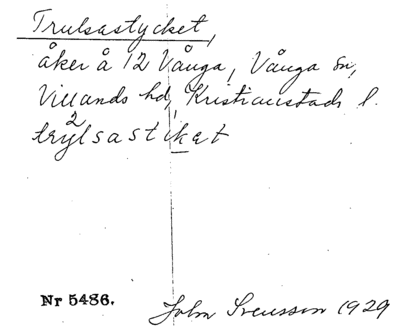 Trulsastycket,
åker å 12 Vånga, Vånga sn,
Villands hd, Kristianstads l.
trÿ2lsastiket
Nr 5486.
John Svensson 1929